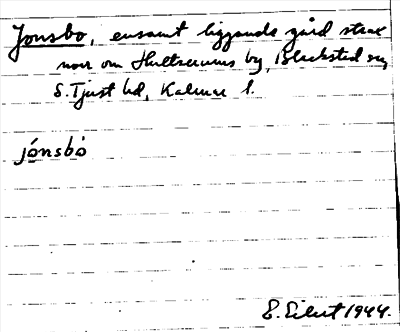 Jonsbo, ensamt liggande gård strax
norr om by, Blackstad sn,
S. Tjust hd, Kalmar l.
jónsbò
1944.